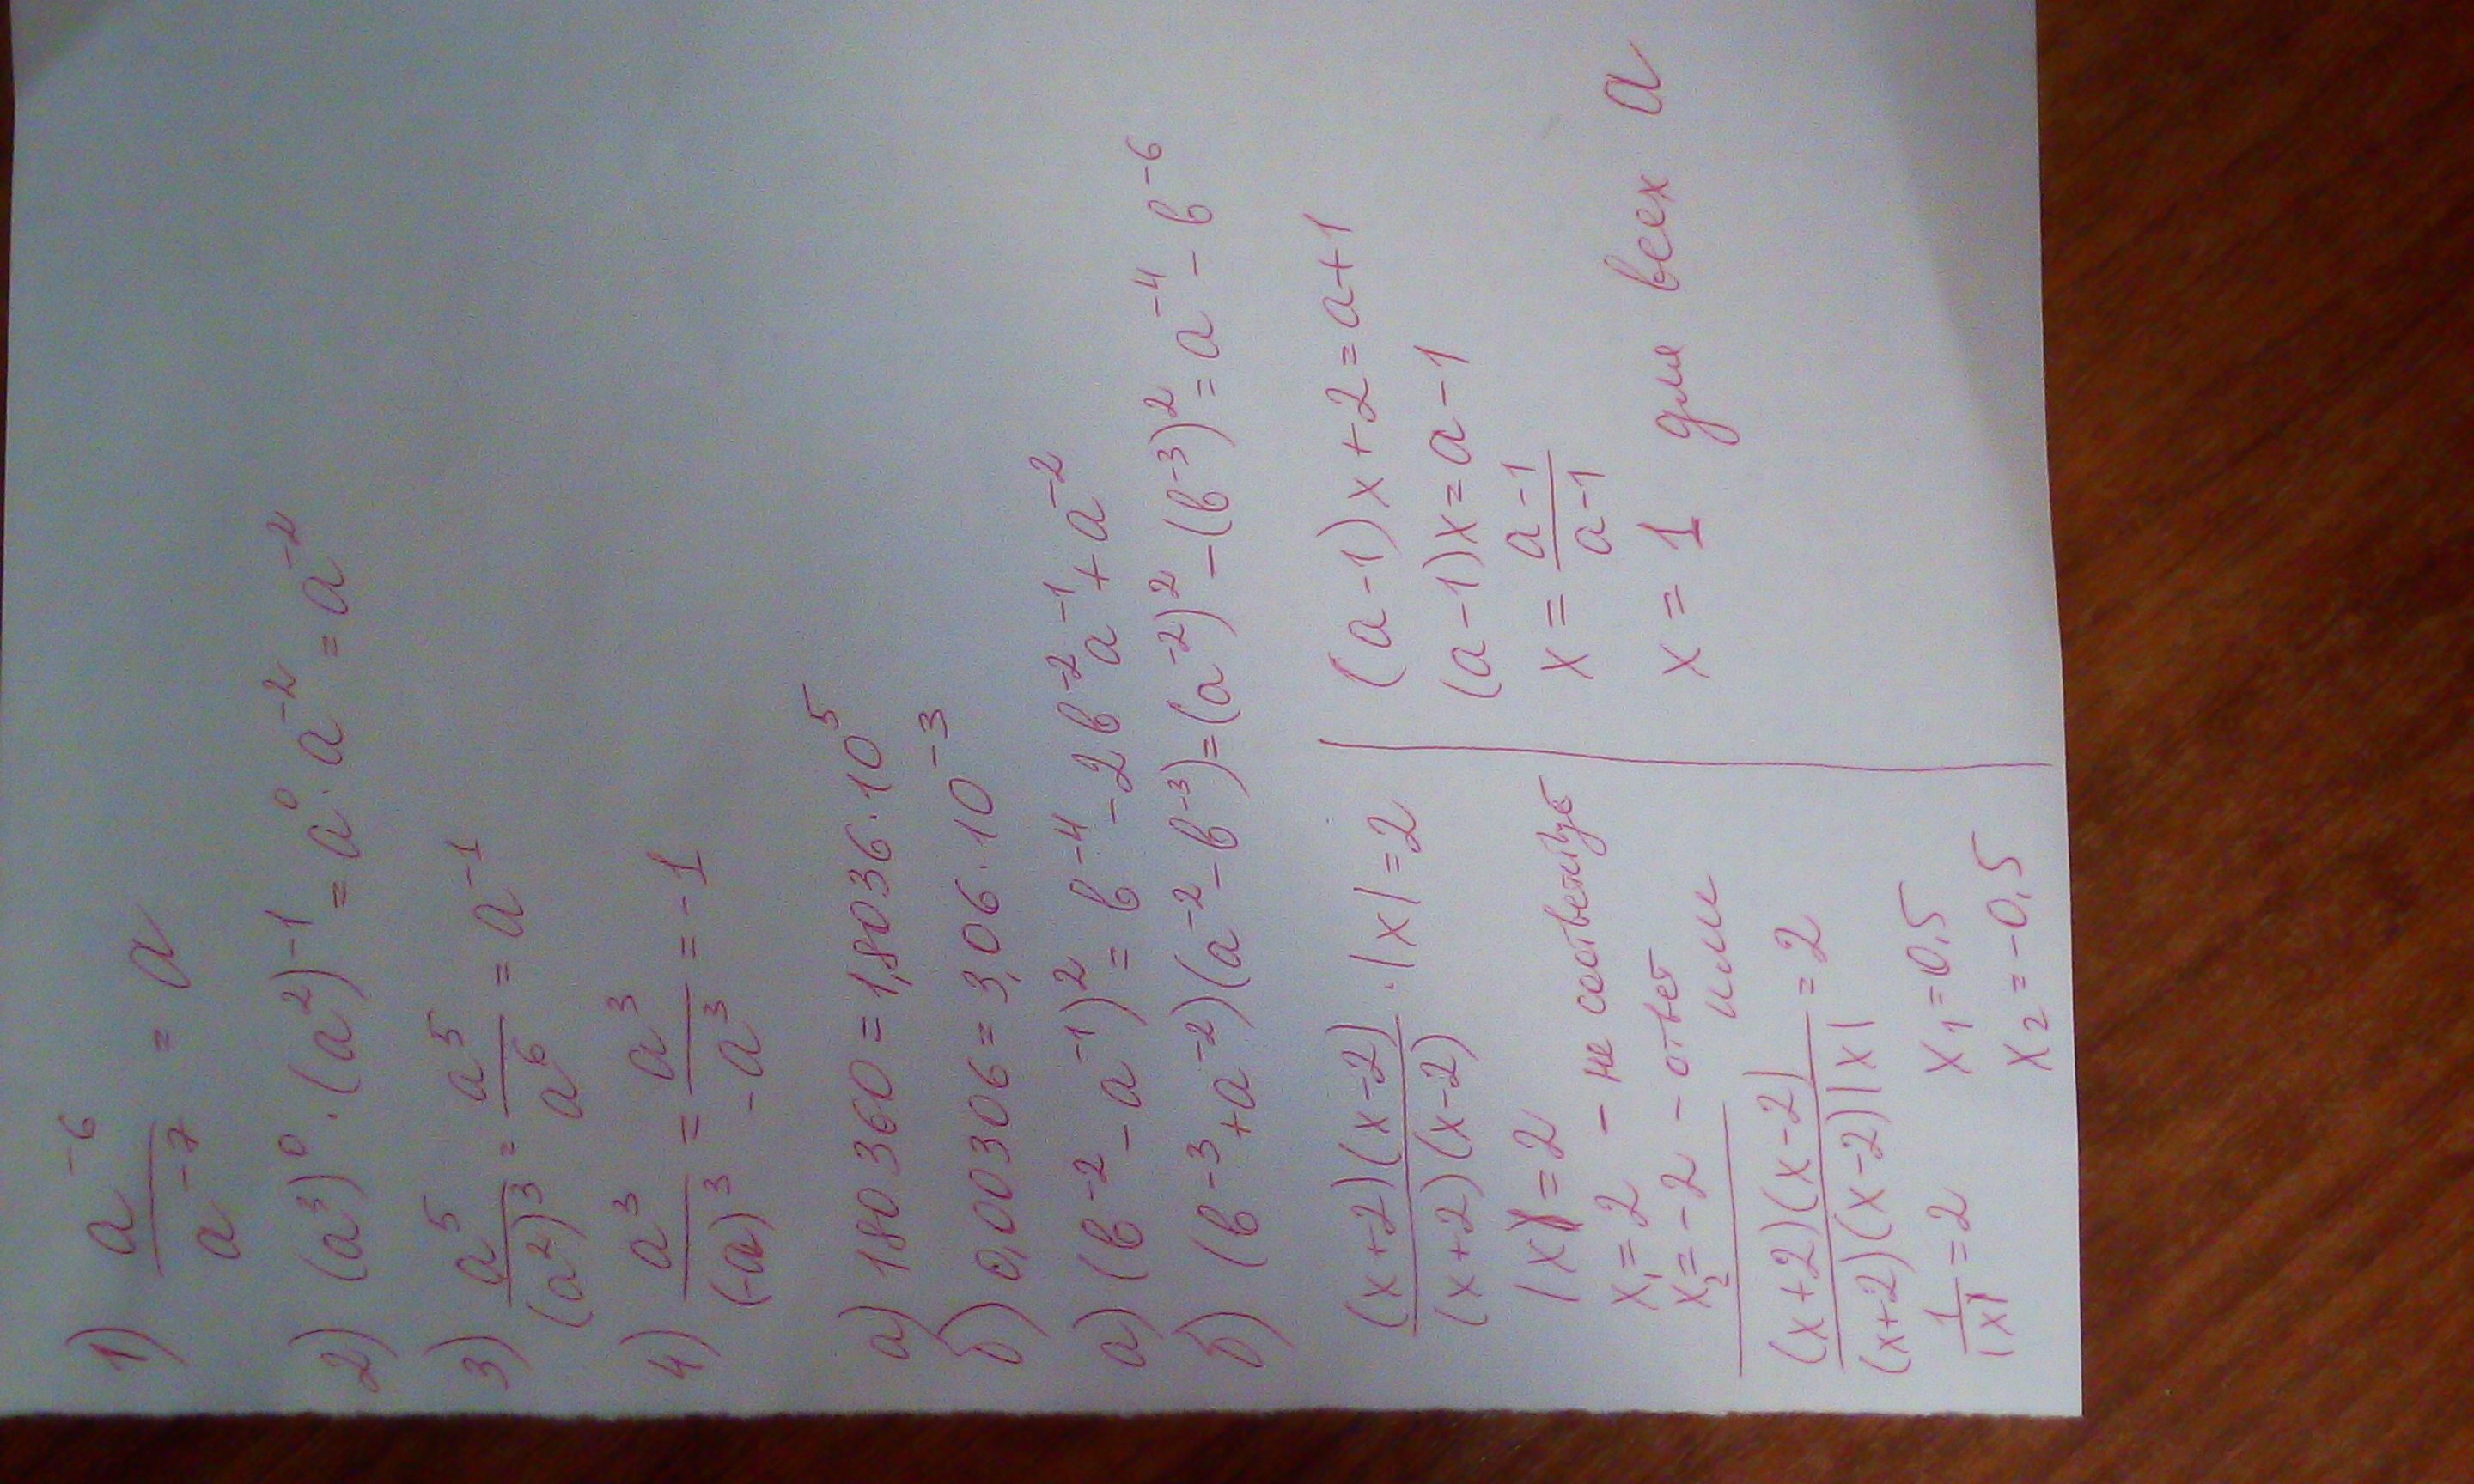 1) a⁻⁶/a⁻⁷ = a
2) (a³)⁰ · (a²)⁻¹ = a⁰ · a⁻² = a⁻²
3) a⁵/(a²)³ = a⁵/a⁶ = a⁻¹
4) a³/(-a)³ = a³/-a³ = -1
а) 180360 = 1,8036 · 10⁵
б) 0,00306 = 3,06 · 10⁻³
а) (в⁻² - a⁻¹)² = в⁻⁴ - 2в⁻²a⁻¹ + a⁻²
б) (в⁻³ + a⁻²)(a⁻² - в⁻³) = (a⁻²)² - (в⁻³)² = a⁻⁴ - в⁻⁶
(x+2)(x-2)/(x+2)(x-2) · |x| = 2
|x| = 2
x₁ = 2 - не соответствует
x₂ = -2 - ответ
или
(x+2)(x-2)/(x+2)(x-2)|x| = 2
1/|x| = 2
x₁ = 0,5
x₂ = -0,5
(a-1)x+2=a+1
(a-1)x=a-1
x = a-1/a-1
x = 1 для всех a